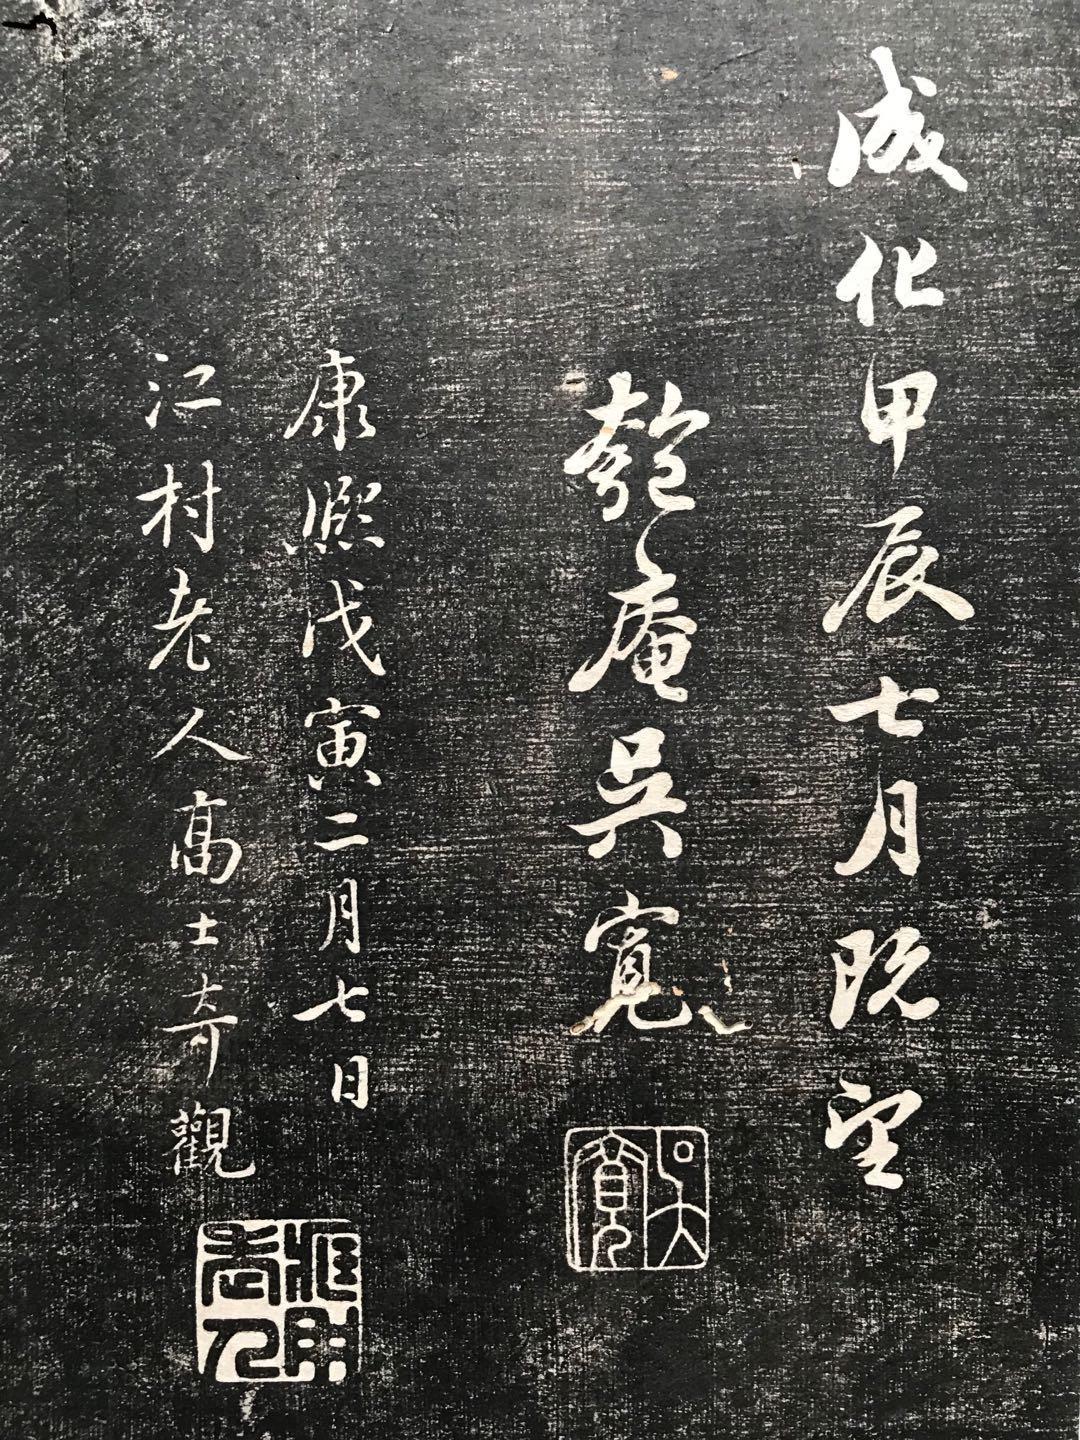 成化甲辰七月既望
匏庵吳寬
吳寬
康熙戊寅二月七日
江村老人高士奇觀